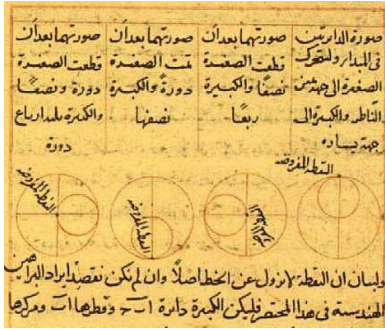 صورة الدايرتين
في المبدا ولتتحرك
الصغيرة الى جهة يمين
الناظر والكبيرة الى
جهة يساره
صورتهما بعد ان
قطعت الصغيرة
نصفًا والكبيرة
ربعًا
صورتهما بعد ان
تمت الصغيرة
دورة والكبيرة
نصفها
صورتهما بعد ان
قطعت الصغيرة
دورة ونصفًا
والكبيرة ثلثة ارباع
دورة
النقطة المفروضة
النقطة المفروضة
النقطة المفروضة
ولبيان ان النقطة لا تزول عن الخط اصلاً وان لم نكن نقصد ايراد البراهين
الهندسية في هذا المختصر فليكن الكبيرة دائرة اب ح وقطرها اب ومركزها